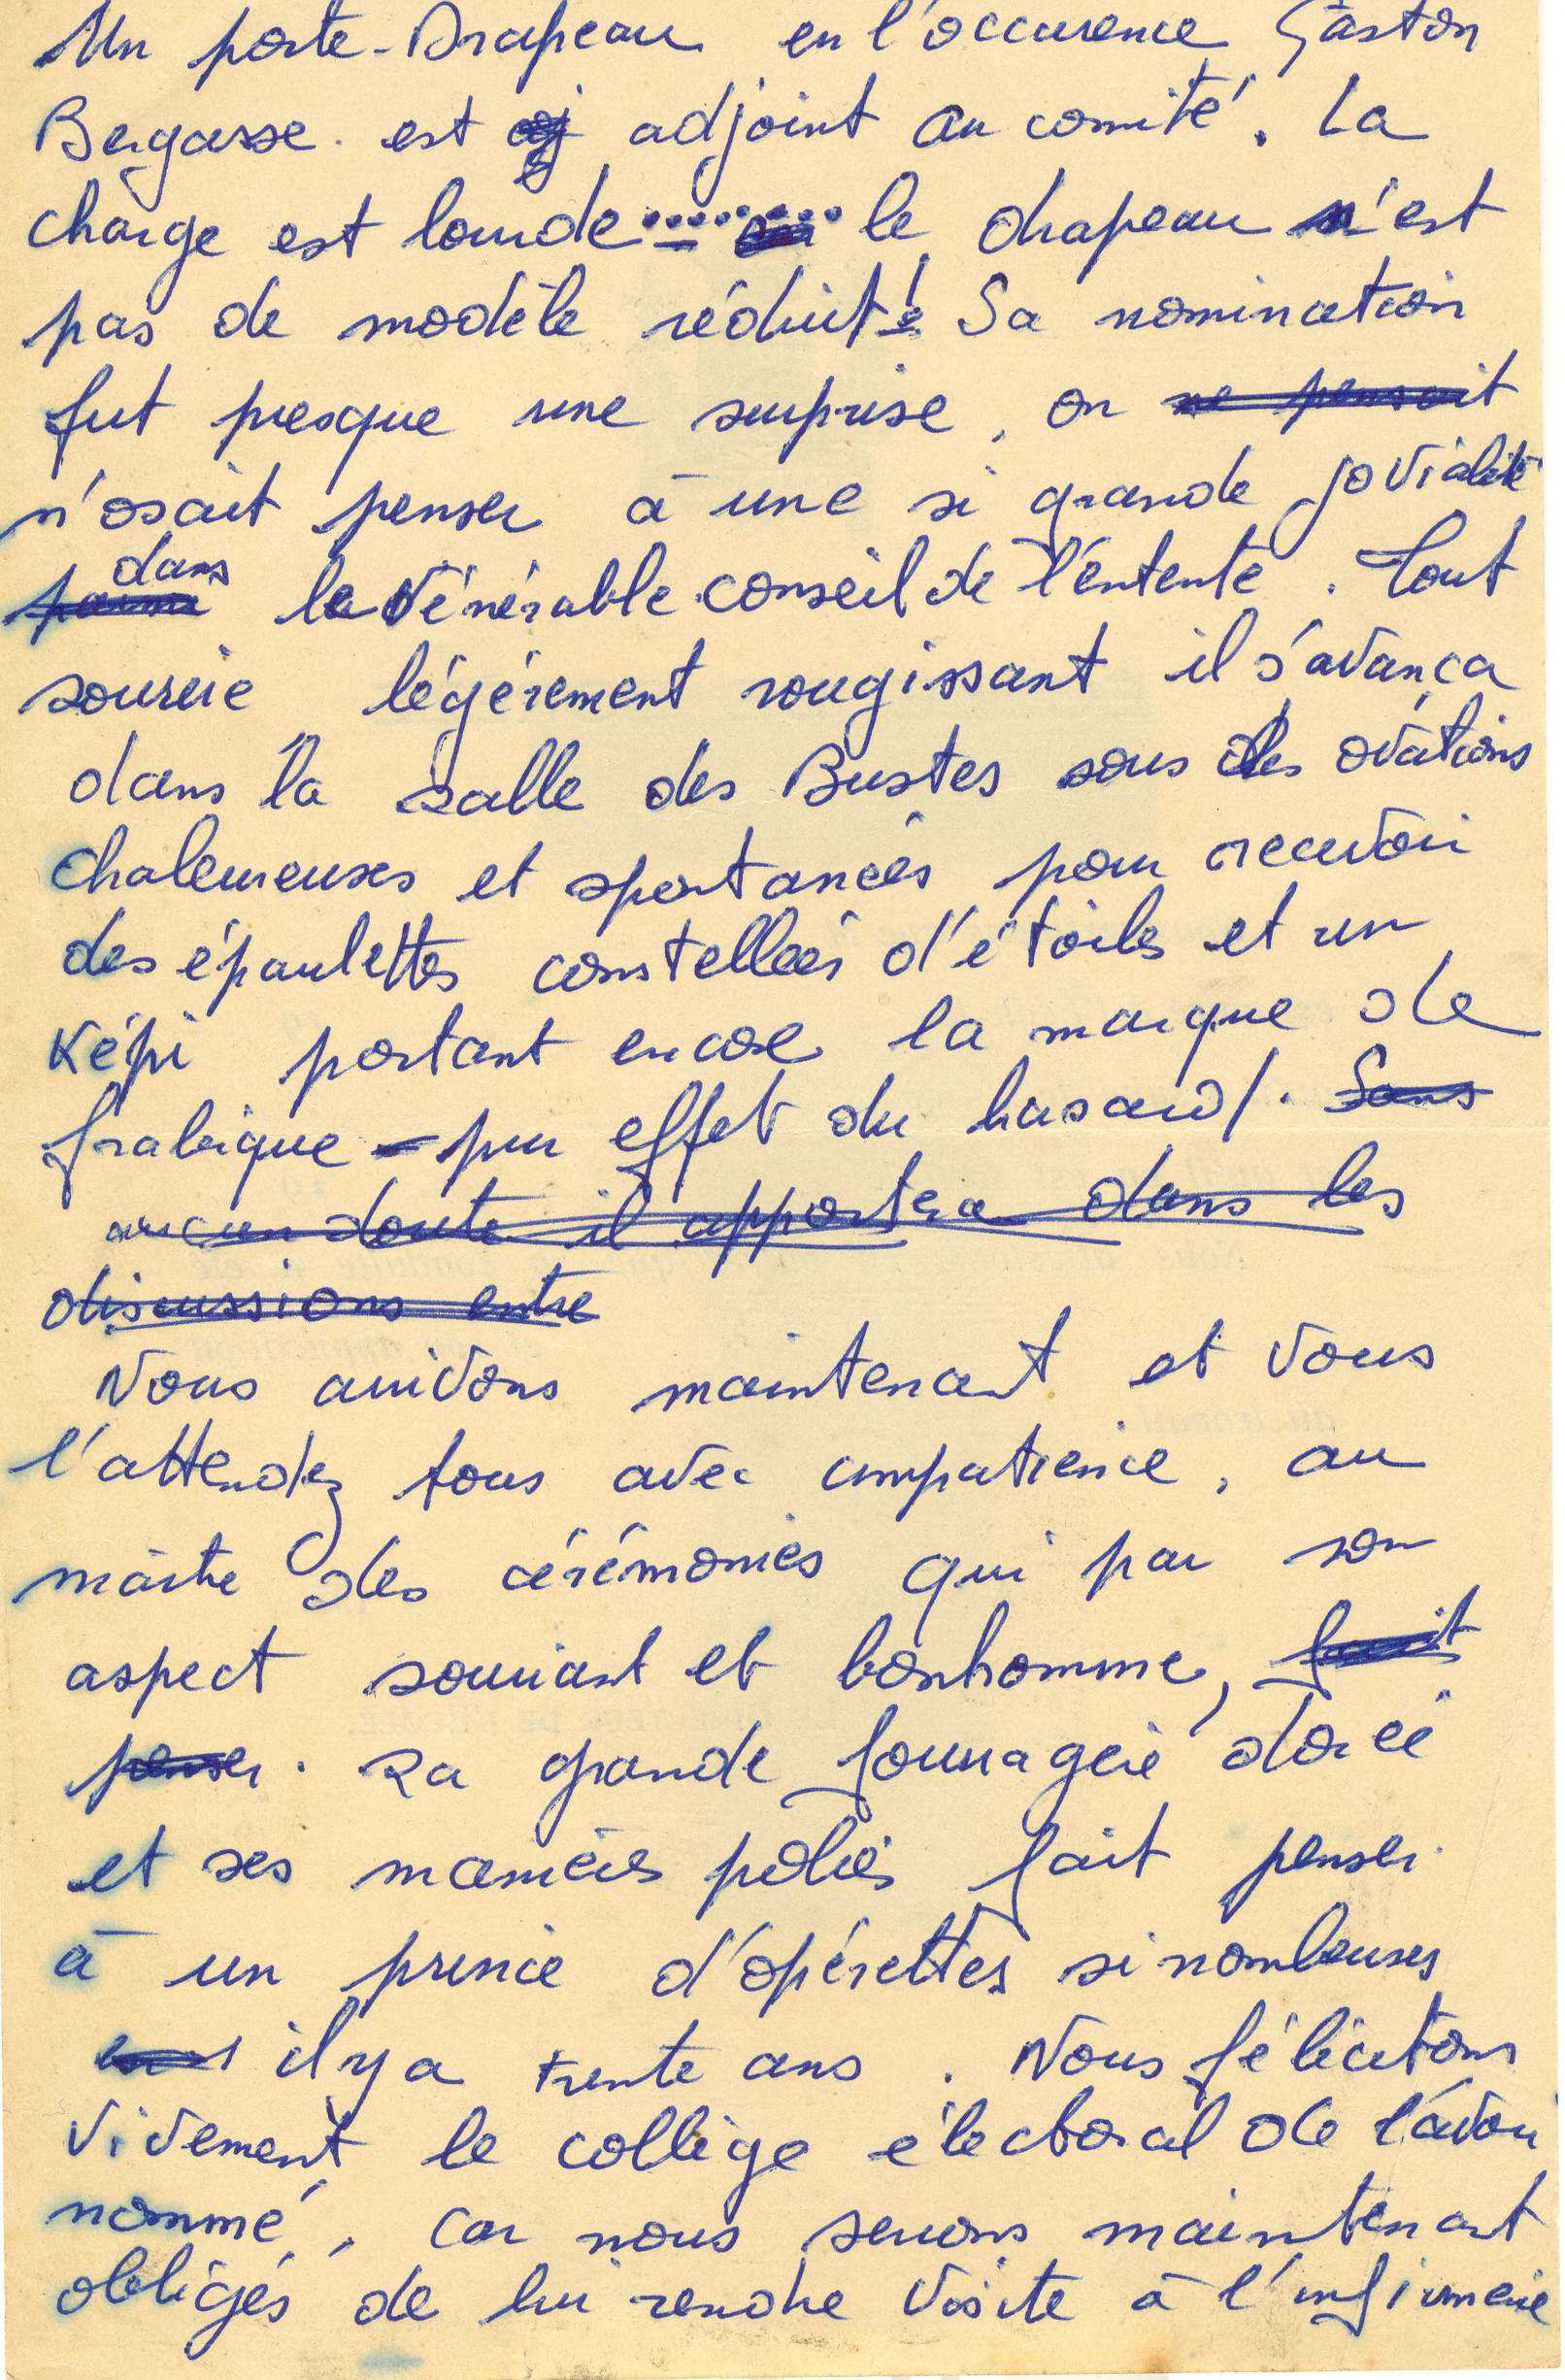 Un porte-Drapeau en l'occurence Gaston
Bergasse. est aj adjoint au comité. La
charge est lourde......... le drapeau n'est
pas de modèle réduit! Sa nomination
fut presque une surprise, on ne pensait
n'osait penser à une si grande jovialité
parmi dans le vénérable conseil de l'entente. Tout
sourire légèrement rougissant il s'avança
dans la salle des Bustes sous des ovations
chaleureuses et spontanées pour recevoir
des épaulettes constellées d'étoiles et un
Képi portant encore la marque de
frabique - pur effet du hasard/. Sans
aucun doute il apportera dans les
discussions entre
Nous arrivons maintenant et vous
l'attendez tous avec impatience, au
maître des cérémonies qui par son
aspect souriant et bonhomme, fait
penser. sa grande fourragère dorée
et ses manières polies fait penser
à un prince d'opérettes si nombreuses
il y a trente ans. Nous félicitons
vivement le collège électoral de l'avoir
nommé, car nous serons maintenant
obligés de lui rendre visite à l'infirmerie